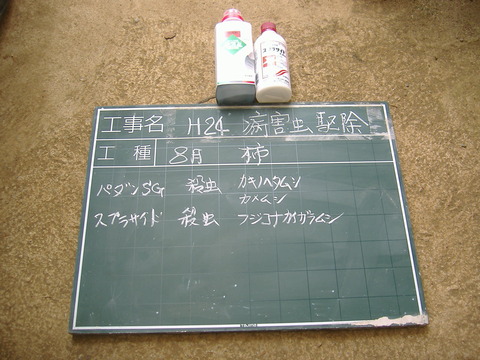 工事名 H24 病害虫駆除
工種 8月 柿
パダンSG 殺虫 カキノヘタムシ
カメムシ
スプラサイド 殺虫 フジコナカイガラムシ